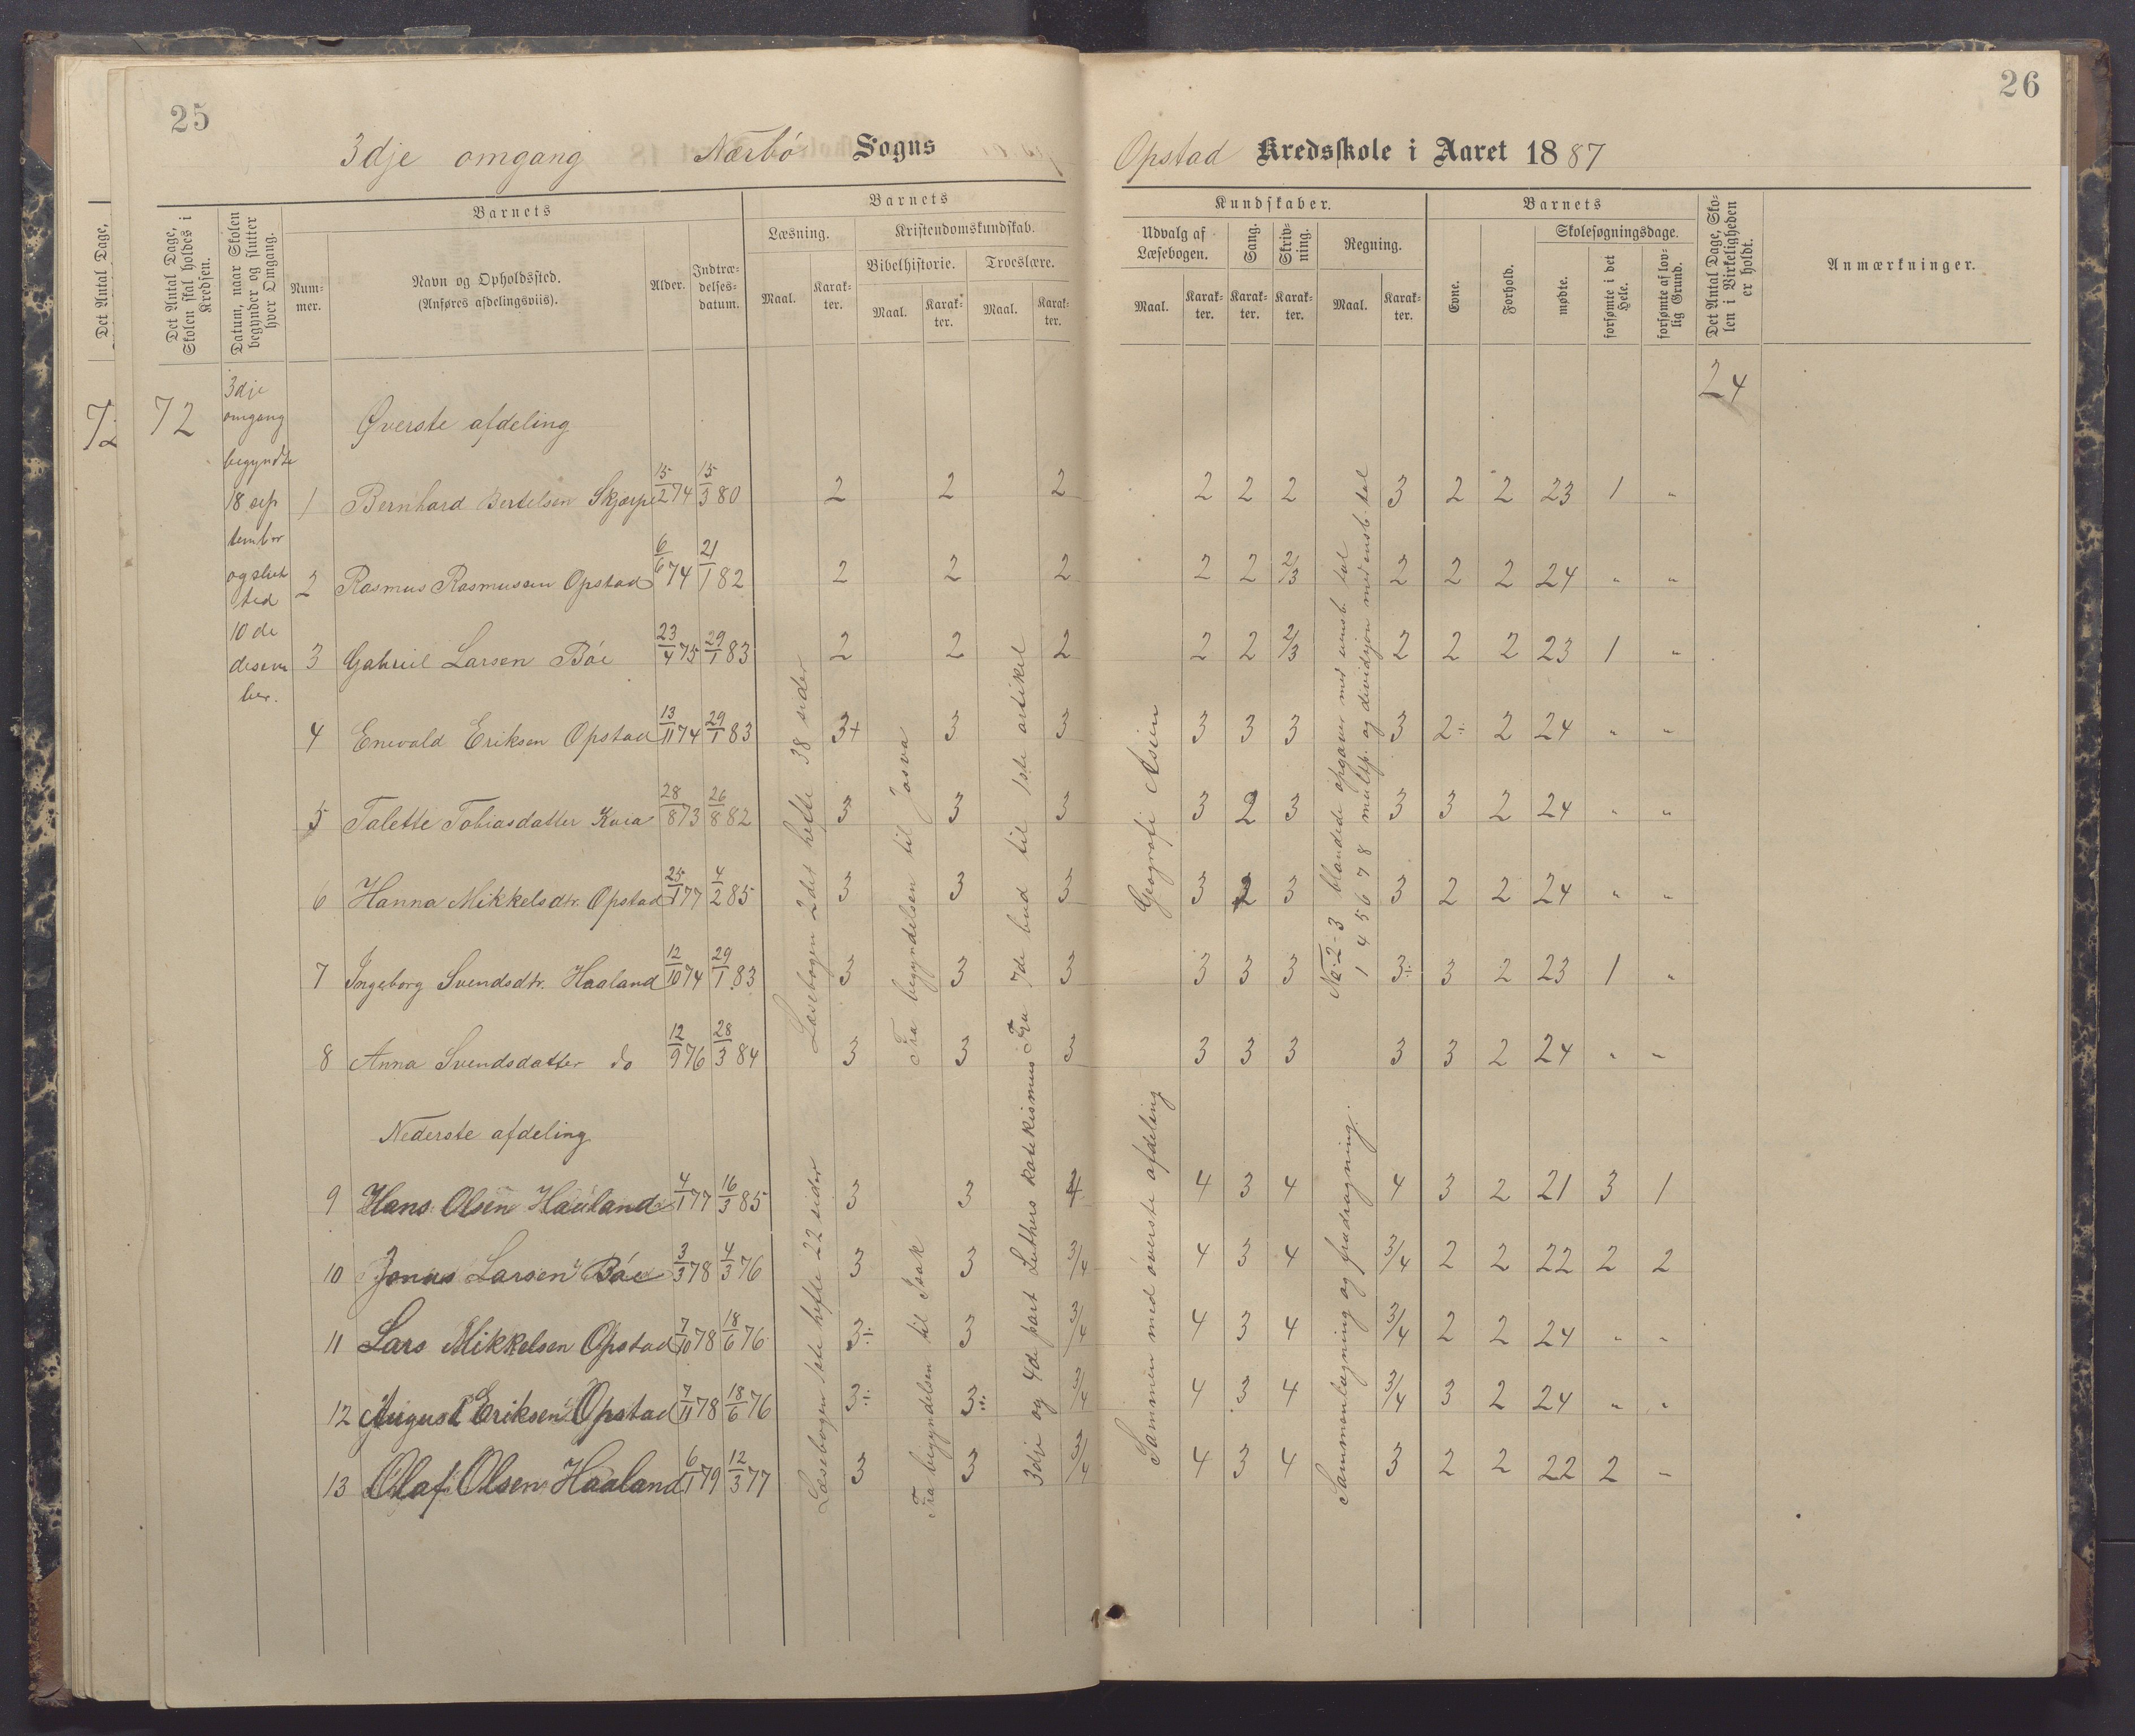 25
26
3dje omgang Nærbö Sogns
Opstad Kredsskole i Aaret 1887
Det Antal Dage,
Det Antal Dage, Skolen skal holdes i Kredsen.
Datum, naar Skolen begynder og slutter hver Omgang.
Barnets
Num-mer.
Navn og Opholdssted.
(Anføres afdelingsviis).
Alder.
Indtræ-delses-datum.
Barnets
Læsning.
Kristendomskundskab.
Bibelhistorie.
Troeslære.
Maal.
Karak-ter.
Maal.
Karak-ter.
Maal.
Karak-ter.
Kundskaber.
Udvalg af Læsebogen.
Sang.
Skriv-ning.
Regning.
Maal.
Karak-ter.
Karak-ter.
Karak-ter.
Maal.
Karak-ter.
Barnets
Evne.
Forhold.
Skolesøgningsdage.
mødte.
forsømte i det Hele.
forsømte af lov-lig Grund.
Det Antal Dage, Sko-len i Virkeligheden er holdt.
Anmærkninger.
72
72
3dje
omgang
begyndte
18 sep
tember
og slut
ted
10 de
desem
ber.
24
Øverste afdeling
1 Bernhard Bertelsen Skjærpe 15/2 74 15/3 80 2 2 2 2 2 2 3 2 2 23 1 "
2 Rasmus Rasmussen Opstad 6/6 74 21/1 82 2 2 2 2 2 2/3 2 2 2 24 " "
3 Gabriel Larsen Böe 23/4 75 29/1 83 2 2 2 2 2 2/3 2 2 2 23 1 "
4 Enevald Eriksen Opstad 13/11 74 29/1 83 3+ 3 3 3 3 3 3 2÷ 2 24 " "
5 Talette Tobiasdatter Kvia 28/8 73 26/8 82 3 3 3 3 2 3 3 3 2 24 " "
6 Hanna Mikkelsdtr. Opstad 25/1 77 4/2 85 3 3 3 3 2 3 3 2 2 24 " "
7 Ingeborg Svendsdtr. Haaland 12/10 74 29/1 83 3 3 3 3 3 3 3÷ 3 2 23 1 "
8 Anna Svendsdatter do 12/9 76 28/3 84 3 3 3 3 3 3 3 3 2 24 " "
Læsebogen 2det hefte 38 sider
Fra begyndelsen til Josva
Fra 7de bud til 1ste artikel
Geografi Asien
No. 2-3 blandede opgaver med uensb. tal
1 4 5 6 7 8 multip. og dividsjon med ensb. tal
Nederste afdeling
9 Hans Olsen Haaland 4/1 77 16/3 85 3 3 4 4 3 4 4 3 2 21 3 1
10 Jonas Larsen Böe 3/3 78 4/3 76 3 3 3/4 4 3 4 3/4 2 2 22 2 2
11 Lars Mikkelsen Opstad 7/10 78 18/6 76 3÷ 3 3/4 4 3 4 3/4 2 2 24 " "
12 August Eriksen Opstad 7/11 78 18/6 76 3÷ 3÷ 3/4 4 3 4 3/4 3 2 24 " "
13 Olaf Olsen Haaland 6/1 79 12/3 77 3 3 3/4 4 3 4 3 2 2 22 2 "
Læsebogen 1ste hefte 22 sider
Fra begyndelsen til Isak
3dje og 4de part Luthers katekismus
Sammen med överste afdeling
Sammenlægning og fradragning.